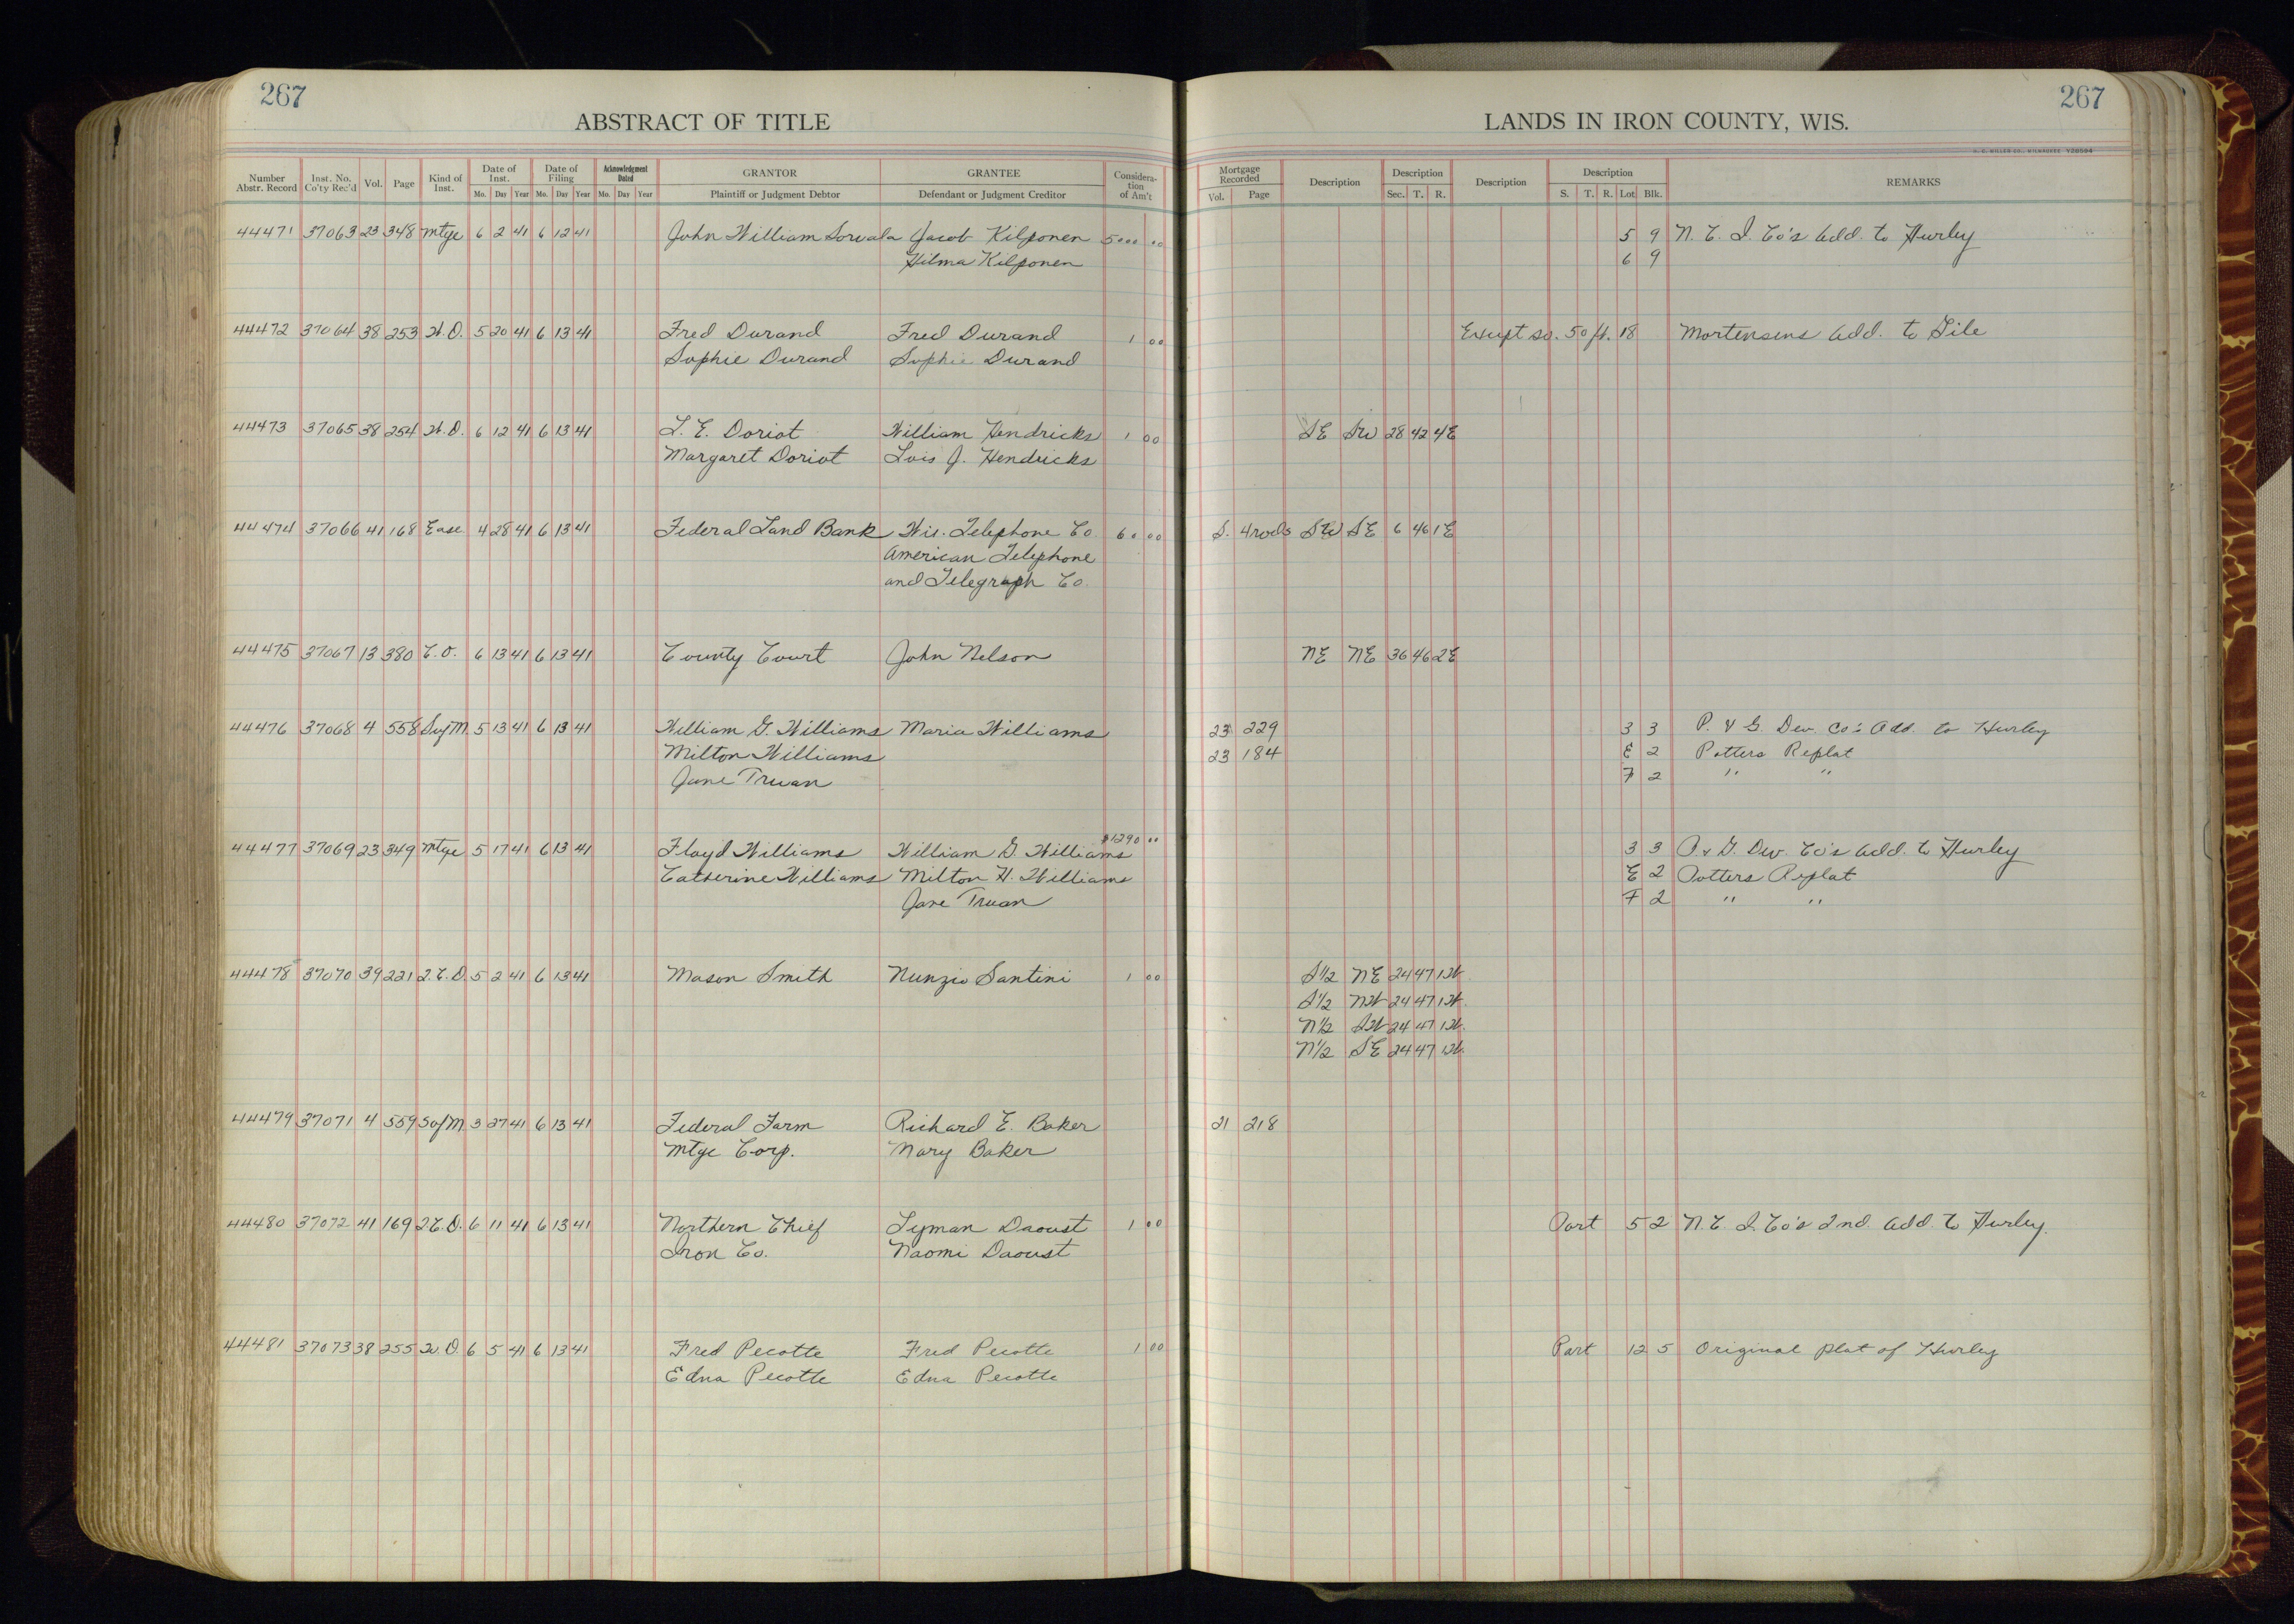 267
ABSTRACT OF TITLE
Number Abstr. Record Inst. No. Co'ty Rec'd Vol. Page Kind of Inst. Date of Inst. Mo. Day Year Date of Filing Mo. Day Year Acknowledgment Dated Mo. Day Year GRANTOR Plaintiff or Judgment Debtor GRANTEE Defendant or Judgment Creditor Consideration of Am't
44471 37063 23 348 Mtge 6 2 41 6 12 41 John William Sorvala Jacob Kilponen 5000 00
Hilma Kilponen
44472 37064 38 253 W.D. 5 20 41 6 13 41 Fred Durand Fred Durand 1 00
Sophie Durand Sophie Durand
44473 37065 38 254 W.D. 6 12 41 6 13 41 L. E. Doriot William Hendricks 1 00
Margaret Doriot Lois J. Hendricks
44474 37066 41 168 Ease 4 28 41 6 13 41 Federal Land Bank Wis. Telephone Co. 60 00
American Telephone
and Telegraph Co.
44475 37067 13 380 C.O. 6 13 41 6 13 41 County Court John Nelson
44476 37068 4 558 SofM. 5 13 41 6 13 41 William G. Williams Maria Williams
Milton Williams
Jane Truan
44477 37069 23 349 Mtge 5 17 41 6 13 41 Floyd Williams William G. Williams $1290 00
Catherine Williams Milton H. Williams
Jane Truan
44478 37070 39 221 Q.C.D. 5 2 41 6 13 41 Mason Smith Nunzio Santini 1 00
44479 37071 4 559 SofM 3 27 41 6 13 41 Federal Farm Richard E. Baker
Mtge Corp. Mary Baker
44480 37072 41 169 Q.C.D. 6 11 41 6 13 41 Northern Chief Lyman Daoust 1 00
Iron Co. Naomi Daoust
44481 37073 38 255 W.D. 6 5 41 6 13 41 Fred Pecotte Fred Pecotte 1 00
Edna Pecotte Edna Pecotte
267
LANDS IN IRON COUNTY, WIS.
Mortgage Recorded Vol. Page Description Description Sec. T. R. Description Description S. T. R. Lot Blk. REMARKS
5 9 N. C. I. Co's Add. to Hurley
6 9
Except so. 50 ft. 18 Mortensens Add. to Gile
SE SW 28 42 4E
S. 4 rods SW SE 6 46 1E
NE NE 36 46 2E
23 229 3 3 P. & G. Dev. Co's Add. to Hurley
23 184 E 2 Potters Replat
F 2 " "
3 3 P. & G. Dev. Co's Add. to Hurley
E 2 Potters Replat
F 2 " "
S1/2 NE 24 47 1W.
S1/2 NW 24 47 1W.
N1/2 SW 24 47 1W.
N1/2 SE 24 47 1W.
21 218
Part 5 2 N. C. I. Co's 2nd. Add. to Hurley.
Part 12 5 Original plat of Hurley